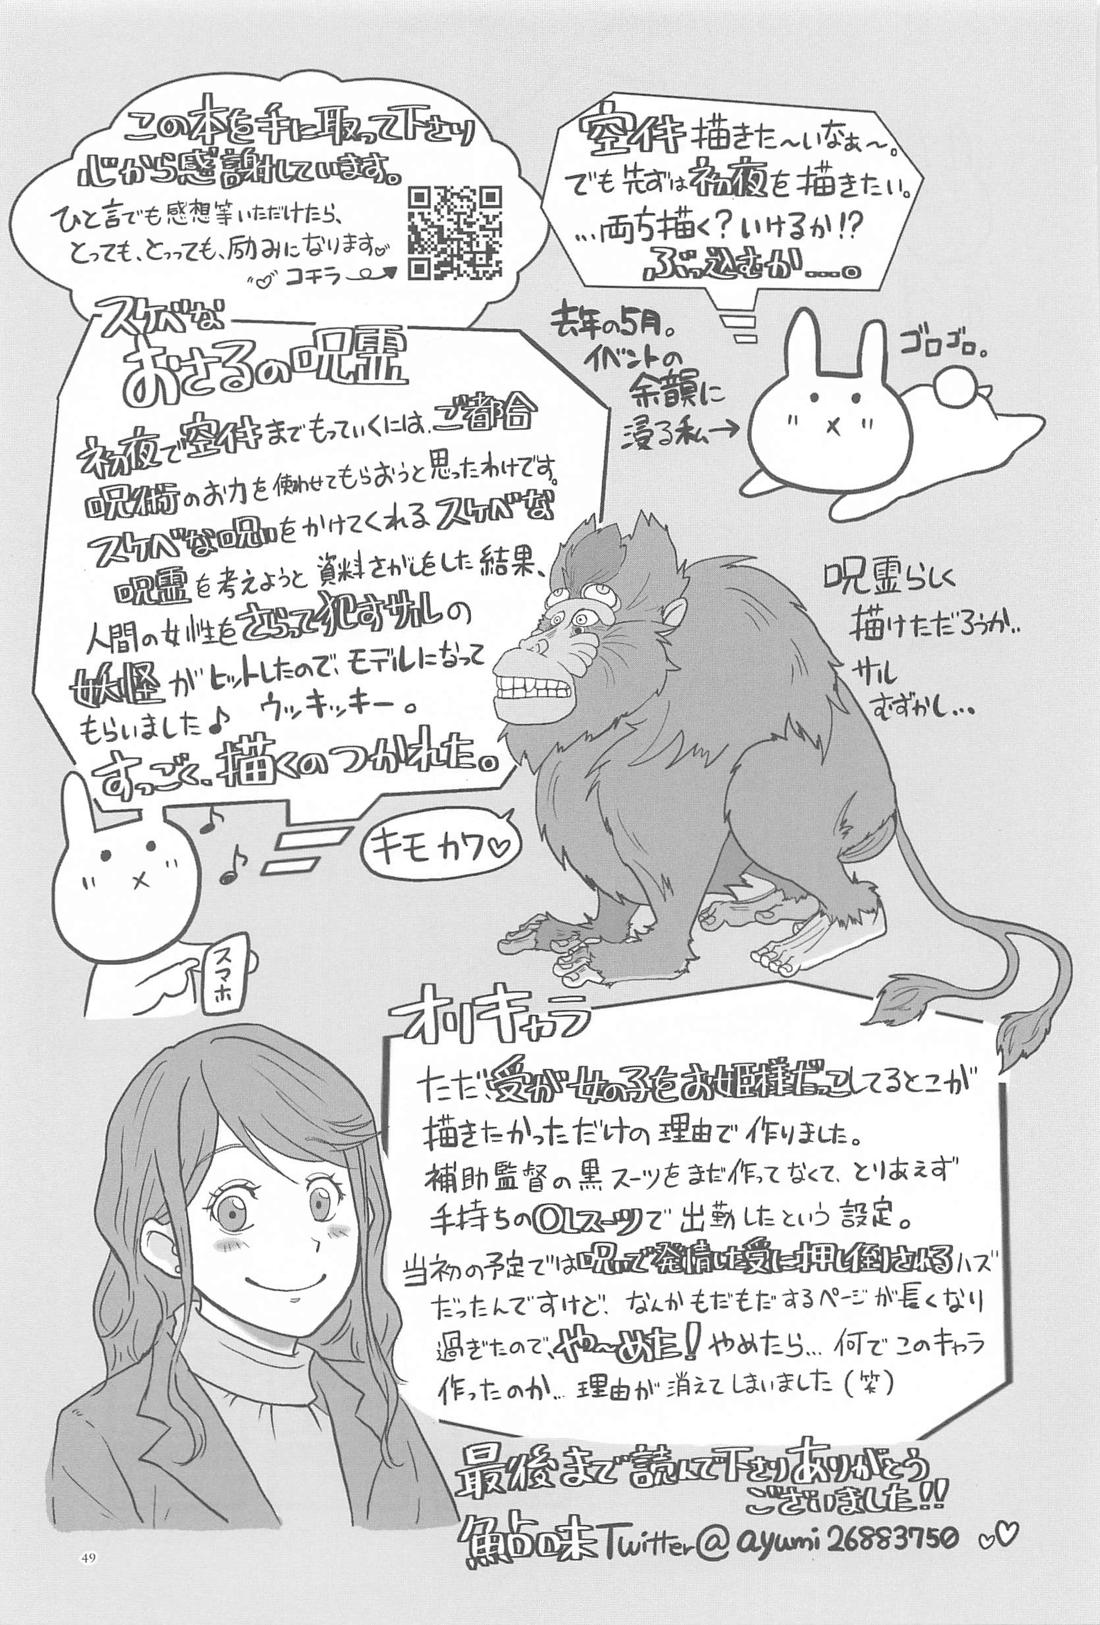 この本を手に取って下さり
心から感謝しています。
ひと言でも感想等いただけたら、
とっても、とっっても、励みになります
コチラ
空イキ描きた〜いなぁ〜。
でも先ずは初夜を描きたい。
…両ち描く?いけるか!?
ぶっ込むか……。
去年の5月。
イベントの
余韻に
浸る私→
ゴロゴロ。
スケベな
おさるの呪霊
初夜で空イキまでもっていくには、ご都合
呪術のお力を使わせてもらおうと思ったわけです。
スケベな呪いをかけてくれるスケベな
呪霊を考えようと資料さがしをした結果、
人間の女性をさらって犯すサルの
妖怪がヒットしたので、モデルになって
もらいました♪ ウッキッキー。
すっごく、描くのつかれた。
呪霊らしく
描けただろうか..
サル
むずかし...
キモカワ♡
スマホ
オリキャラ
ただ、受が女の子をお姫様だっこしてるとこが
描きたかっただけの理由で作りました。
補助監督の黒スーツをまだ作ってなくて、とりあえず
手持ちのOLスーツで出勤したという設定。
当初の予定では呪いで発情した受に押し倒されるハズ
だったんですけど、なんかもだもだするページが長くなり
過ぎたので、や〜めた!やめたら…何でこのキャラ
作ったのか…理由が消えてしまいました(笑)
最後まで読んで下さりありがとう
ございました!!
鮎の味 Twitter@ayumi26883750
49